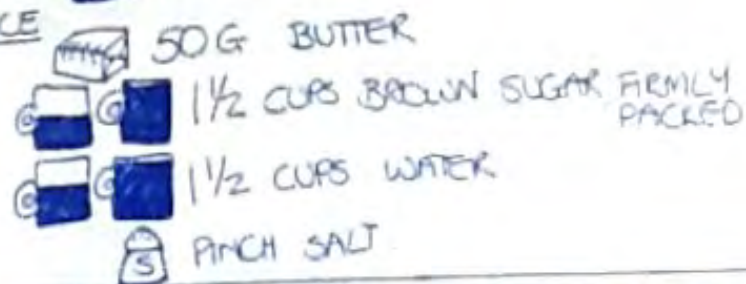 50G BUTTER
1½ CUPS BROWN SUGAR FIRMLY
PACKED
1½ CUPS WATER
S PINCH SALT